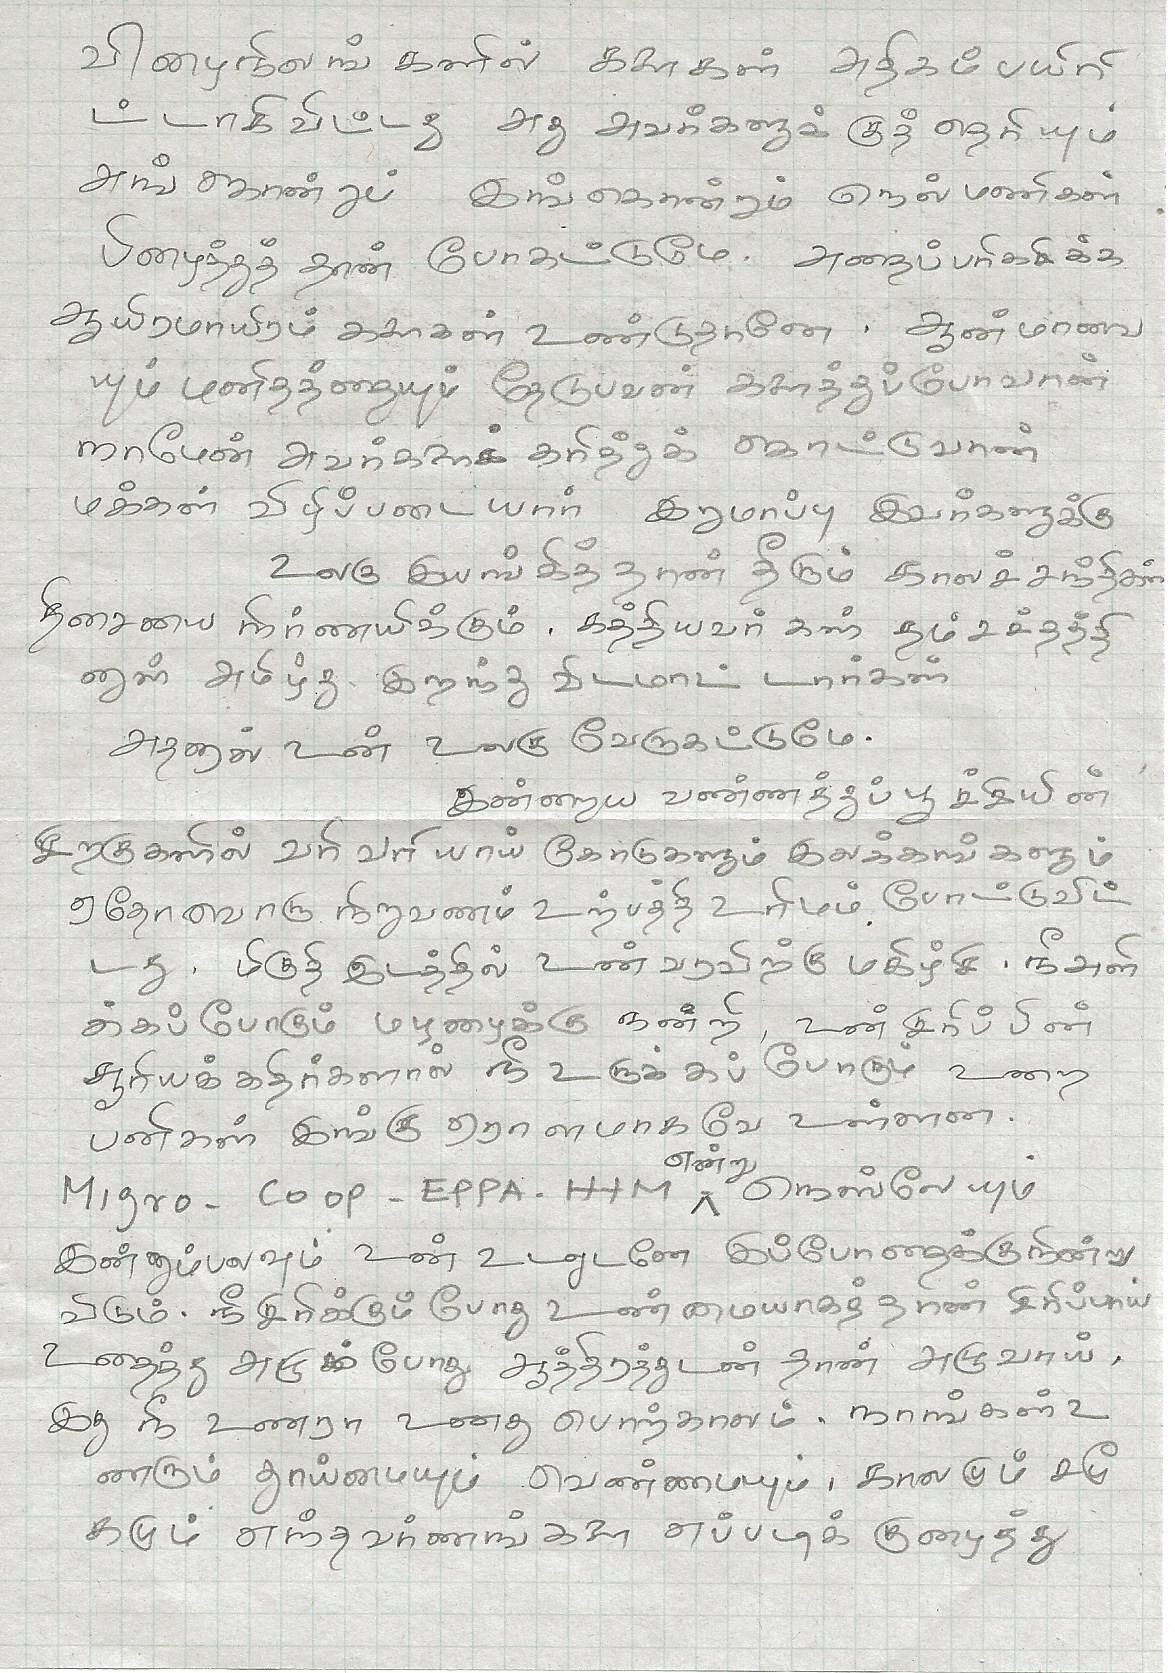 விழைநிலங்களில் களைகள் அதிகம் பயிரி
ட்டாகிவிட்டது அது அவர்களுக்குத் தெரியும்
அங்கொன்றும் இங்கொன்றும் நெல்மணிகள்
பிழைத்துத் தான் போகட்டுமே. அதைப்பரிகசிக்க
ஆயிரமாயிரம் களைகள் உண்டுதானே. ஆன்மாவை
யும் மனிதத்தையும் தேடுபவன் களைத்துப்போவான்
நாமேன் அவர்களைக் கரித்துக் கொட்டுவான்
மக்கள் விழிப்படையார் இறுமாப்பு இவர்களுக்கு
உலகு இயங்கித்தான் தீரும் காலச்சந்திகள்
திசையை நிர்ணயிக்கும். கத்தியவர்கள் தம் சத்தத்தி
னுள் அமிழ்து இறந்து விடமாட்டார்கள்
அதனால் உன் உலகு வேறாகட்டுமே.
இன்றைய வண்ணத்துப்பூச்சியின்
சிறகுகளில் வரி வரியாய் கோடுகளும் இலக்கங்களும்
ஏதோவொரு நிறுவனம் உற்பத்தி உரிமம் போட்டுவிட்
டது. மிகுதி இடத்தில் உன் வரவிற்கு மகிழ்சி. நீ அளி
க்கப்போகும் மழழைக்கு நன்றி, உன் சிரிப்பின்
சூரியக்கதிர்களால் நீ உருக்கப் போகும் உறை
பனிகள் இங்கு ஏராளமாகவே உள்ளன.
Migro - Coop - EPPA - H+M என்று நெஸ்லேயும்
இன்னும்பலவும் உன் உடலுடனே இப்போதைக்குநின்று
விடும். நீ சிரிக்கும்போது உண்மையாகத்தான் சிரிப்பாய்
உதைத்து அழும்போது ஆத்திரத்துடன் தான் அழுவாய்.
இது நீ உணரா உனது பொற்காலம். நாங்கள் உ
ணரும் தாய்மையும் வெண்மையும். காலமும் சமூ
கமும் எந்தவர்ணங்களை எப்படிக் குழைத்து